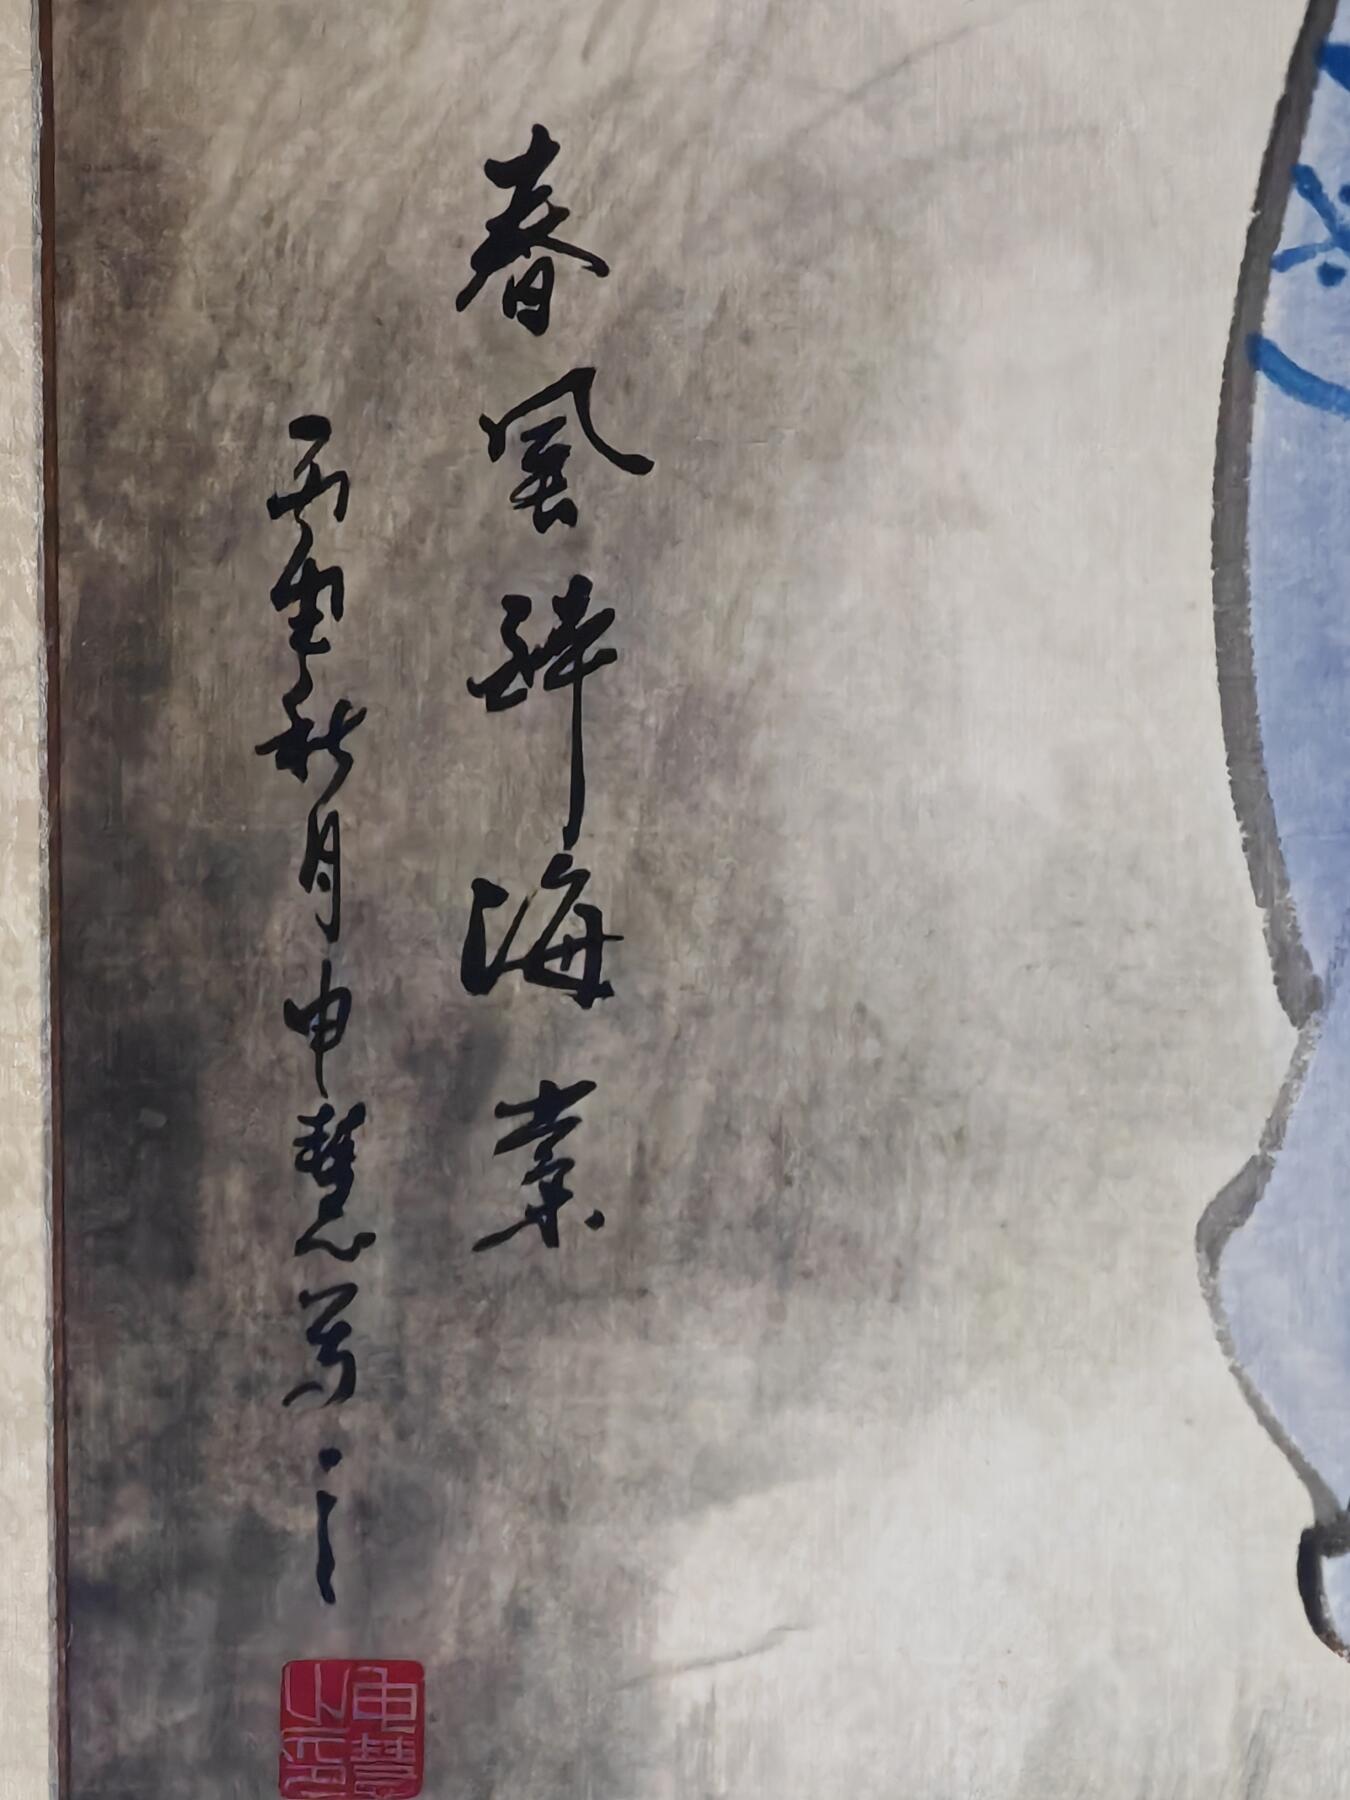 春風醉海棠
丙寅秋月申慧写之
申慧